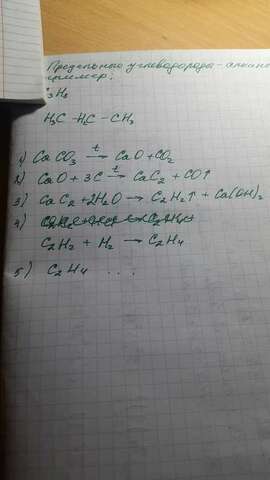 Предельные углеводороды - алканы
пример:
C₃H₈
H₃C - H₂C - CH₃
1) CaCO₃ –t→ CaO + CO₂
2) CaO + 3C –t→ CaC₂ + CO↑
3) CaC₂ + 2H₂O → C₂H₂↑ + Ca(OH)₂
4)
C₂H₂ + H₂ → C₂H₄
5) C₂H₄ ...